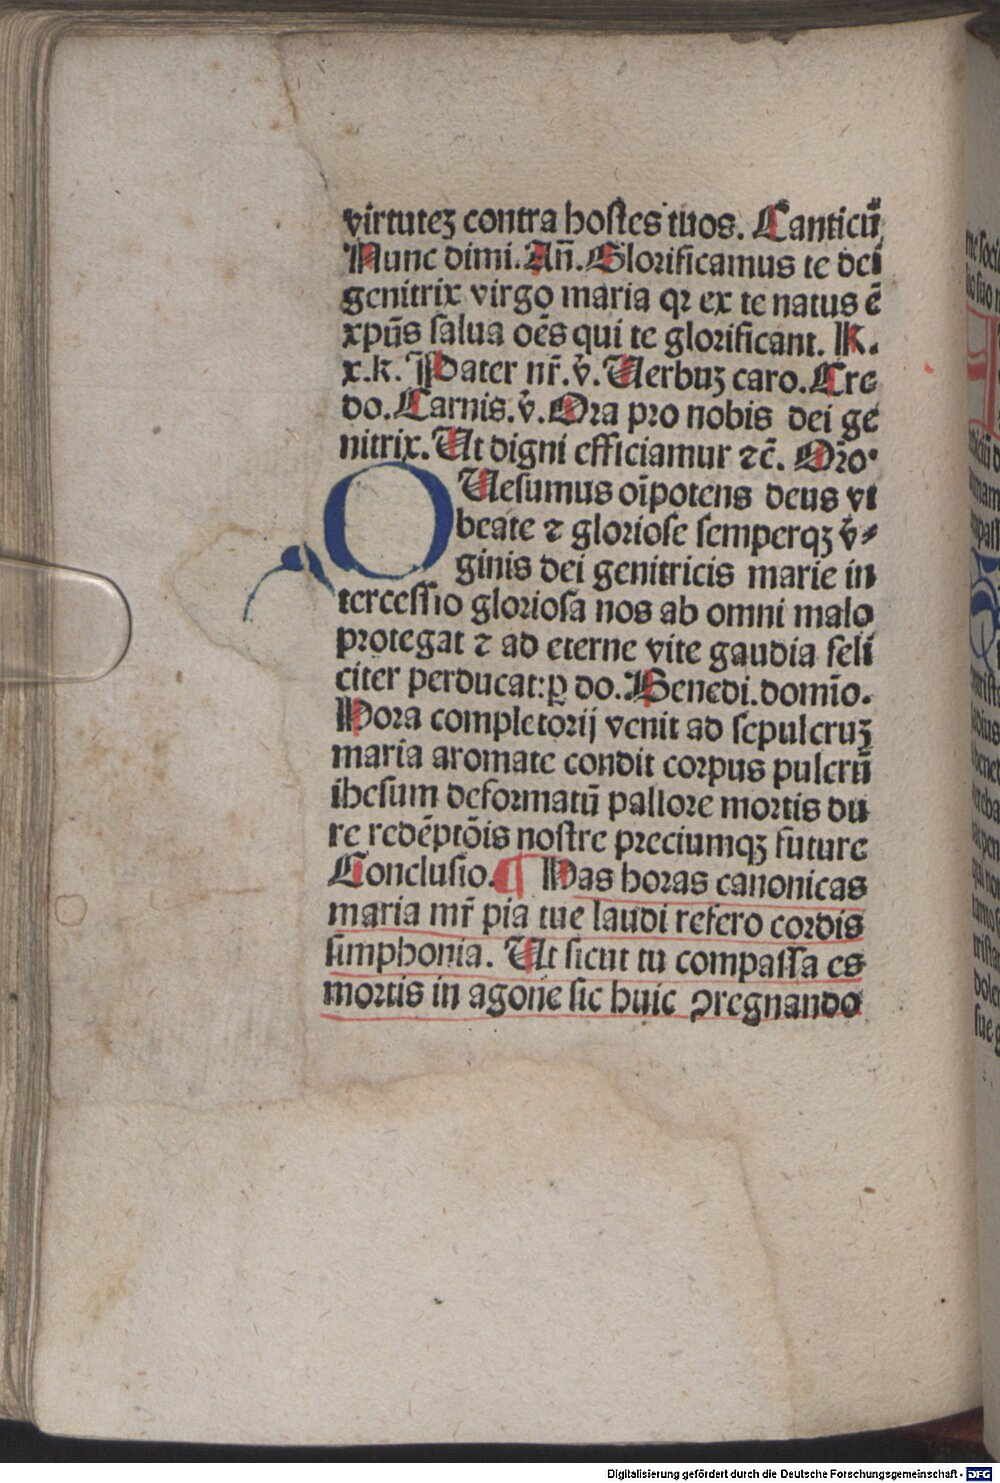 virtuteʒ contra hostes tuos. Canticū
Nunc dimi. Añ. Glorificamus te dei
genitrix virgo maria qꝛ ex te natus ē
xpūs salua oēs qui te glorificant. K.
x.k. Pater nr̄. v̄. Verbuʒ caro. Cre
do. Carnis. v̄. Ora pro nobis dei ge
nitrix. Ut digni efficiamur ⁊c̄. Oro·
QUesumus oīpotens deus vt
beate ⁊ gloriose semperqʒ v̄⸗
ginis dei genitricis marie in
tercessio gloriosa nos ab omni malo
protegat ⁊ ad eterne vite gaudia feli
citer perducat: ꝑ do. Benedi. domīo.
Hora completorij venit ad sepulcruʒ
maria aromate condit corpus pulcrū
ihesum deformatū pallore mortis du
re redēptōis nostre preciumqʒ future
Conclusio. ¶ Has horas canonicas
maria mr̄ pia tue laudi refero cordis
simphonia. Ut sicut tu compassa es
mortis in agone sic huic ꝯregnando
Digitalisierung gefördert durch die Deutsche Forschungsgemeinschaft - DFG